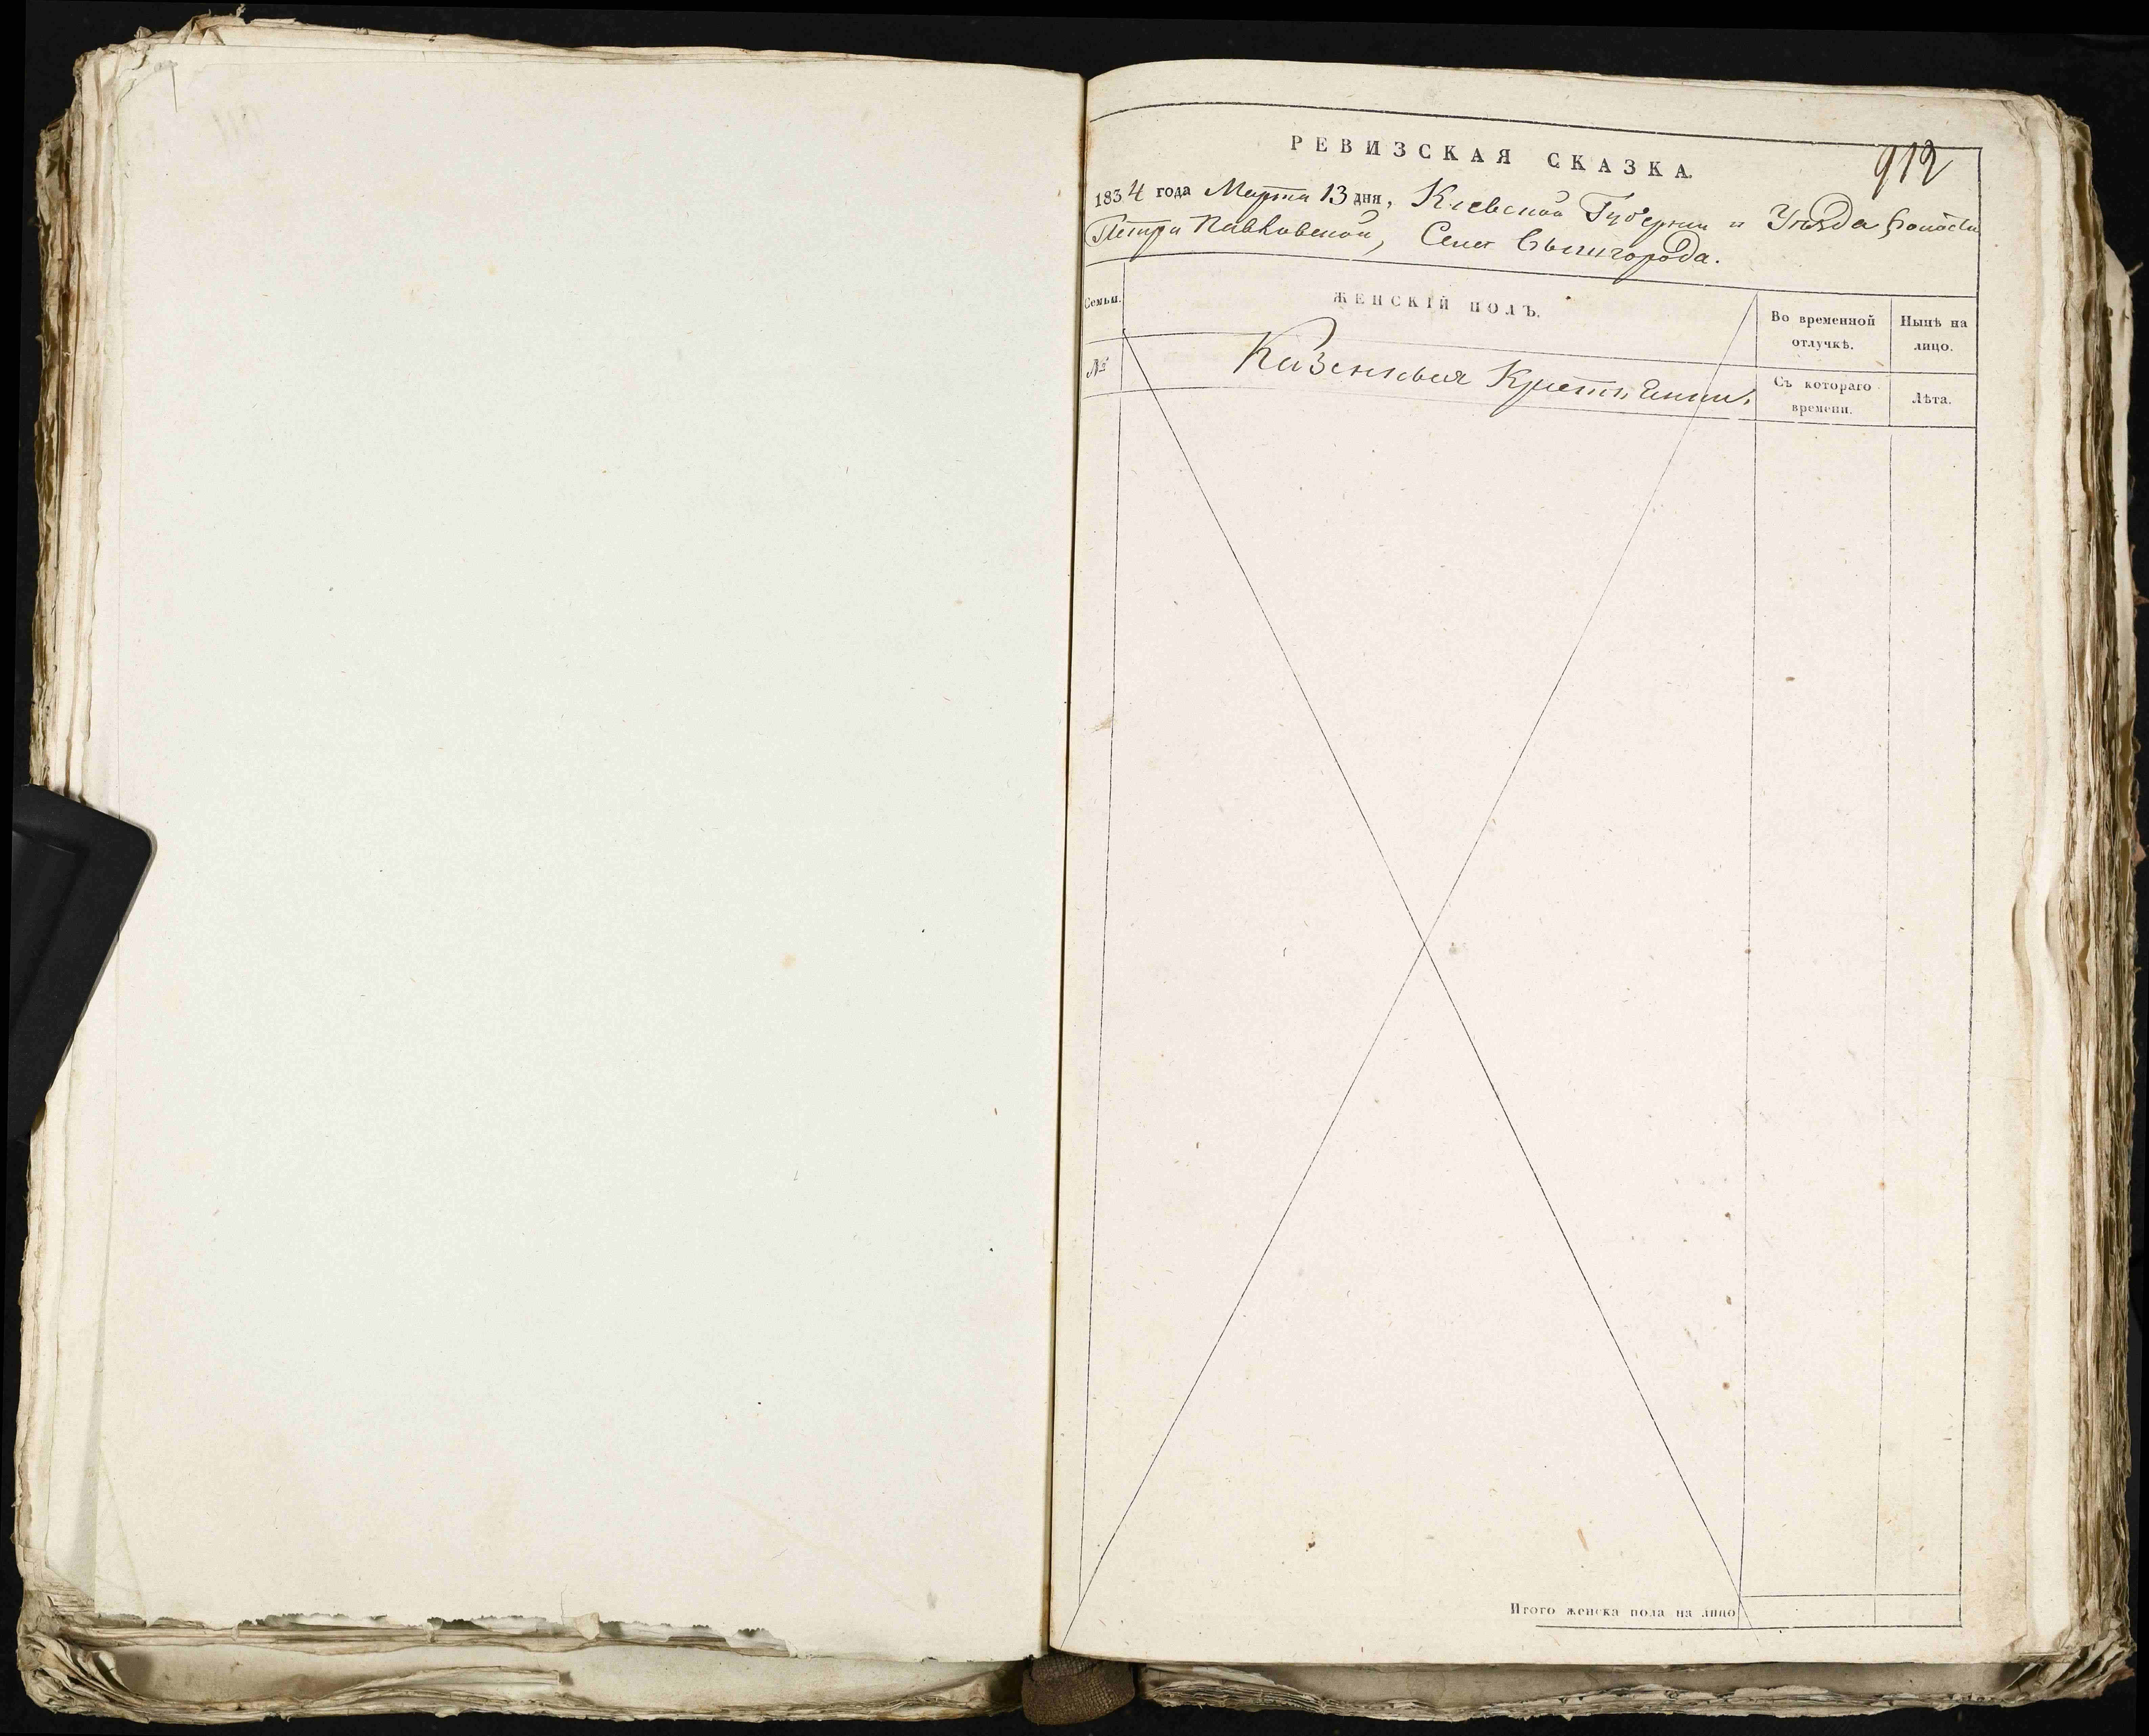 912
РЕВИЗСКАЯ СКАЗКА.
1834 года Марта 13 дня, Киевской Губернии и Уезда Волости
Петро Павловской, Села Вышгорода.
Семьи. ЖЕНСКІЙ ПОЛЪ. Во временной отлучкѣ. Нынѣ на лицо.
№ Казенныя Крестьяни. Съ котораго времени. Лѣта.
Итого женска пола на лицо